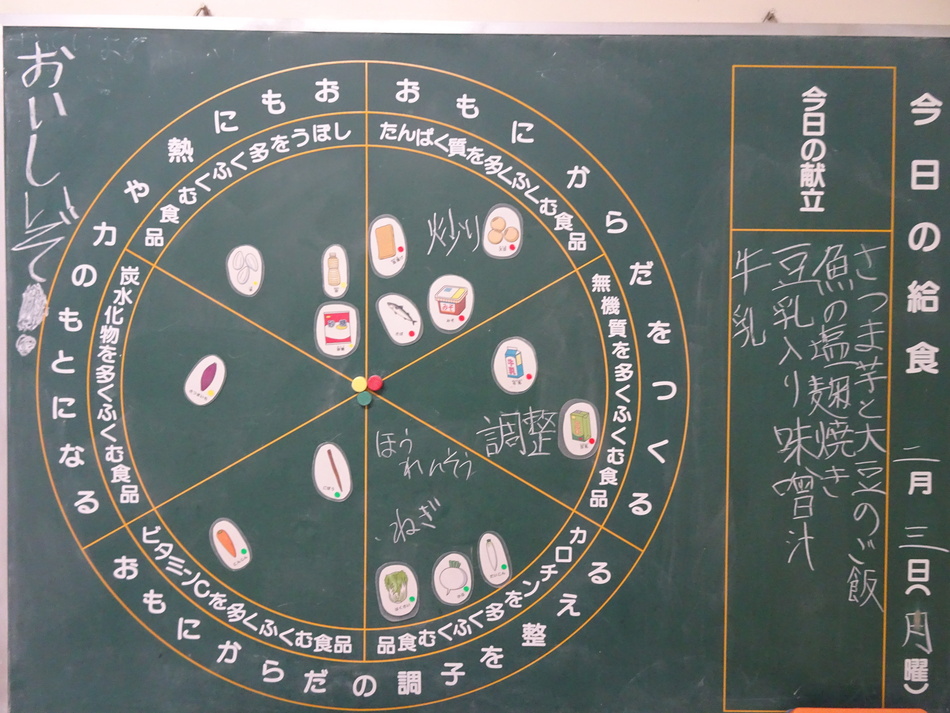 今日の給食 二月三日(月曜)
今日の献立
さつま芋と大豆のご飯
魚の塩麹焼き
豆乳入り味噌汁
牛乳
おもにからだをつくる
たんぱく質を多くふくむ食品
無機質を多くふくむ食品
おもにからだの調子を整える
カロチンを多くふくむ食品
ビタミンCを多くふくむ食品
おもに熱や力のもとになる
炭水化物を多くふくむ食品
しぼうを多くふくむ食品
炒り
調整
ほう
れんそう
ねぎ
牛乳
みそ